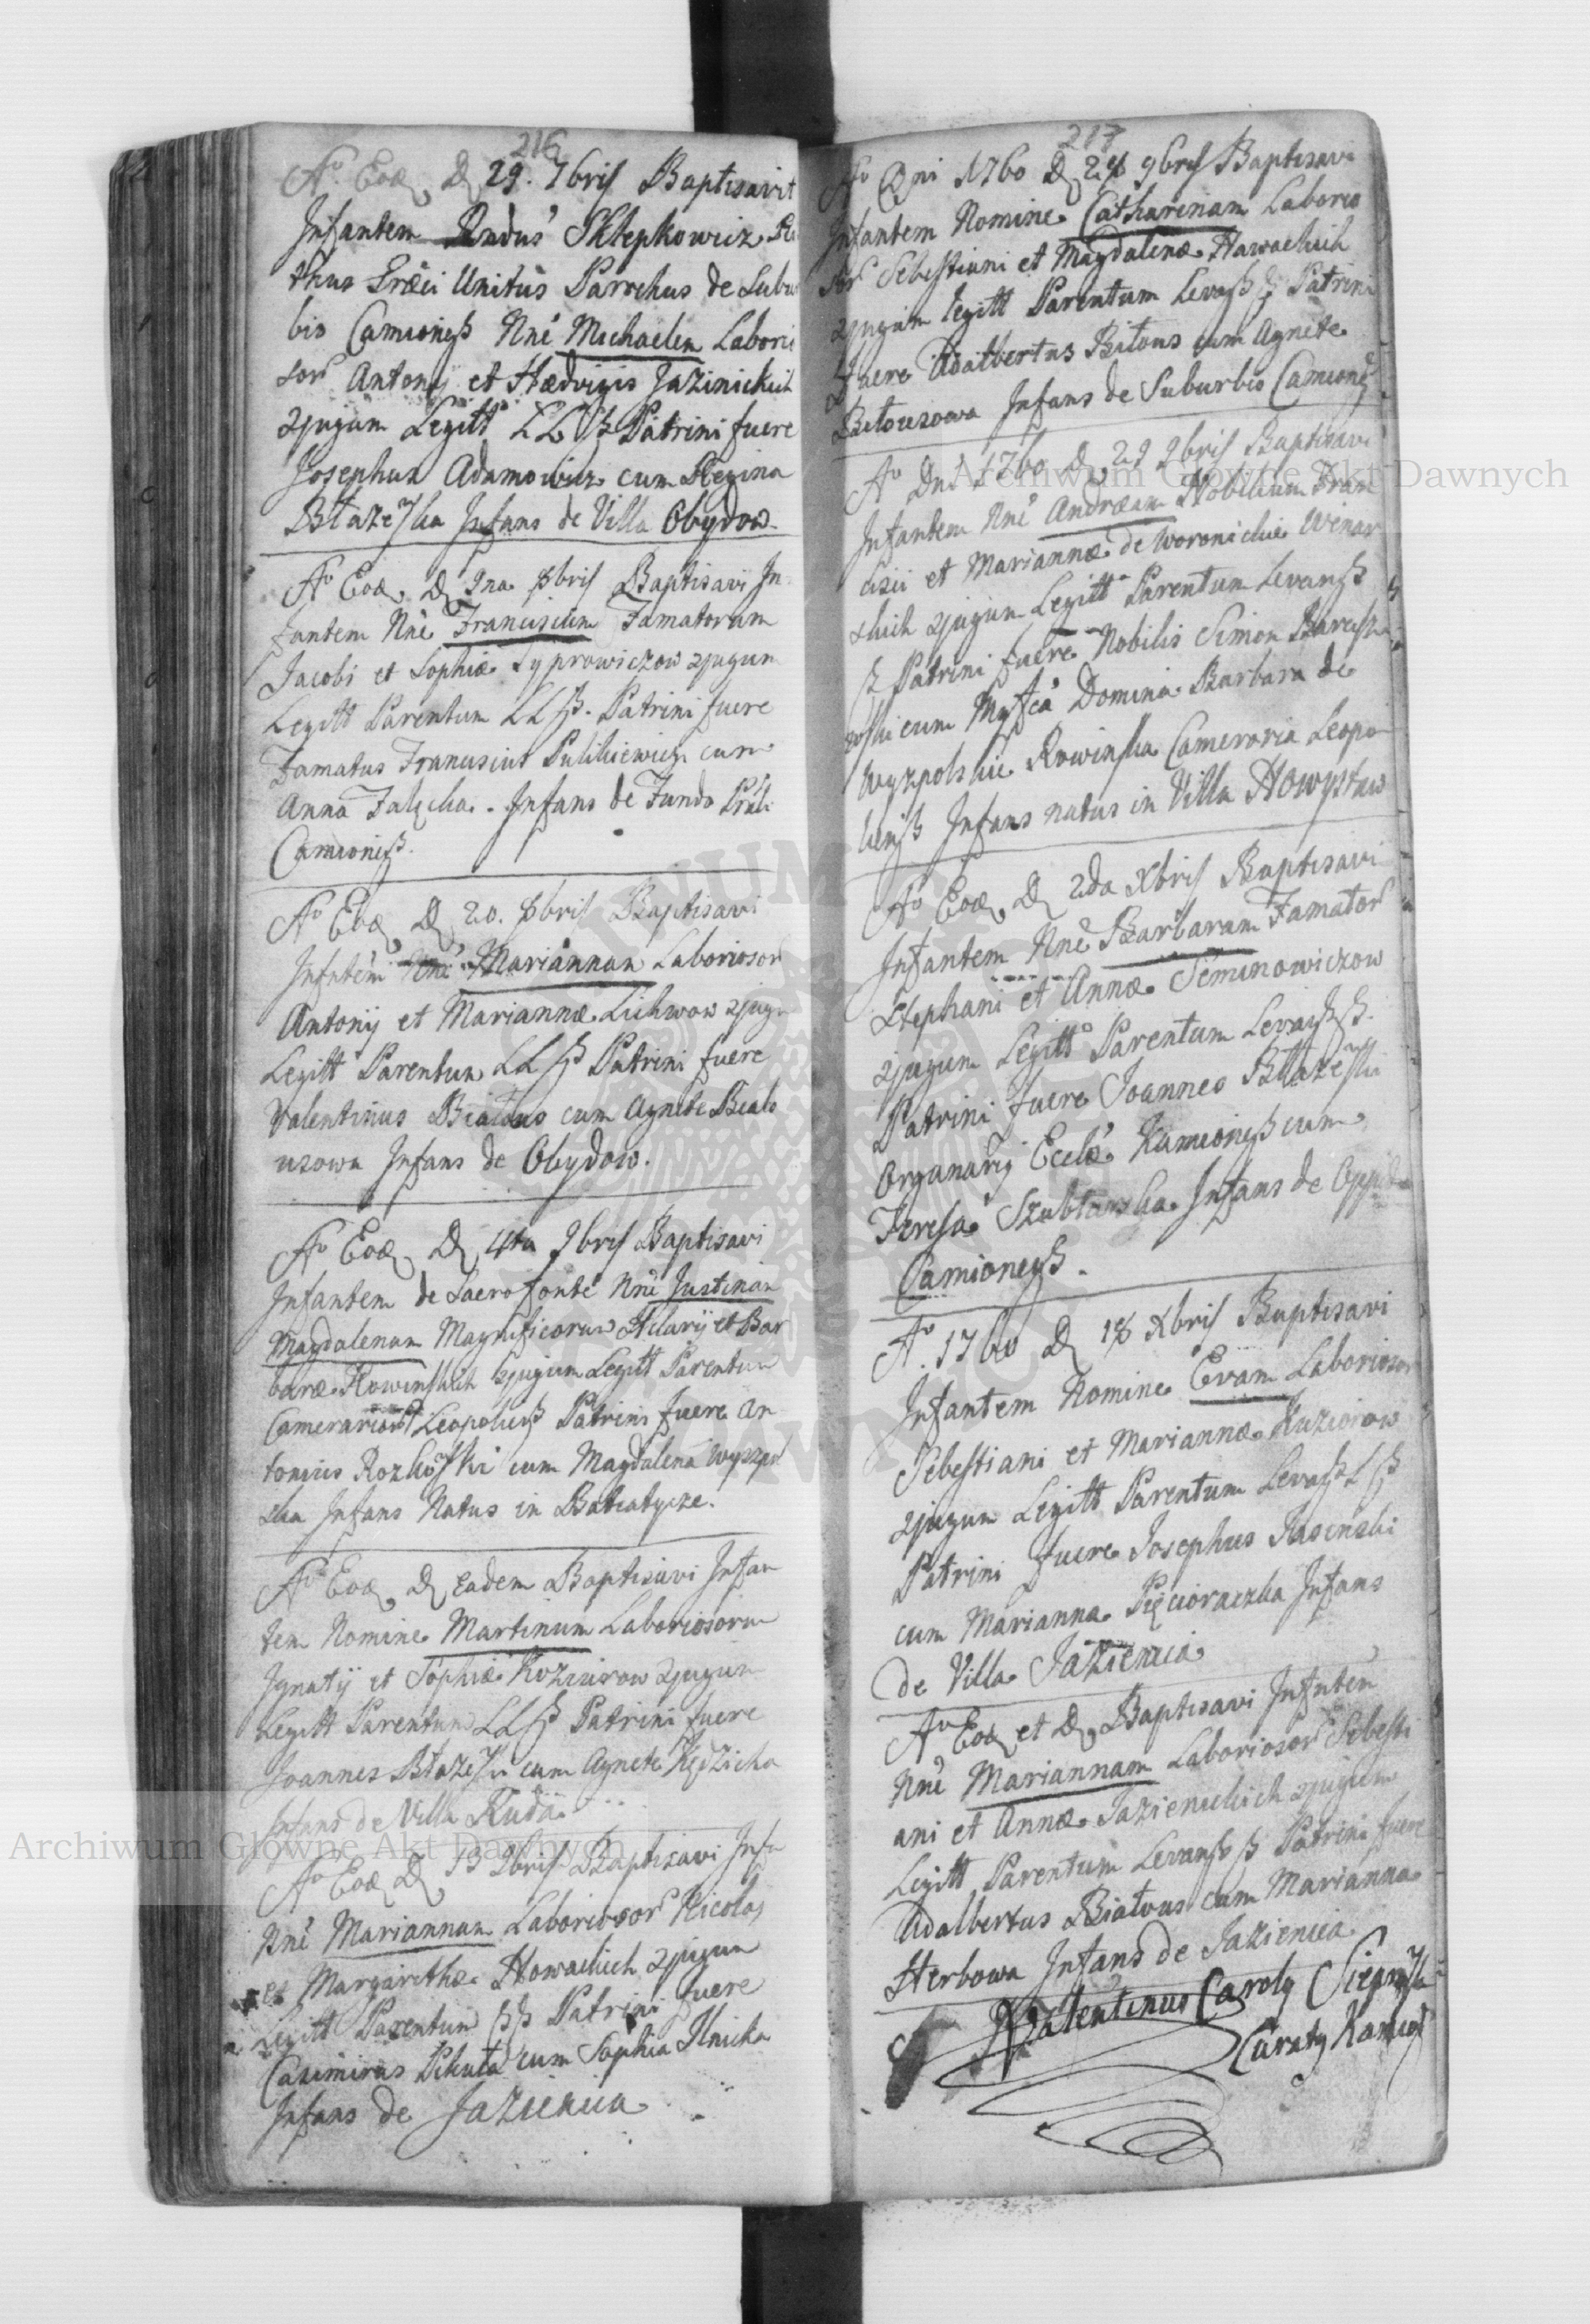 216
Ao Eod D 29. 7bris Baptisavit
Infantem Rndus Sklepkowicz Ri
thus Græci Unitus Parochus de Subur
bio Camioneß Nne Michaelem Laborio
sor Antonij et Hedvigis Jazinickich
2jugum Legitt LLß Patrini fuere
Josephus Adamowicz cum Regina
Błażeska Infans de Villa Obydow
Ao Eod D Ina 8bris Baptisavi In
fantem Nne Franciscum Famatorum
Jacobi et Sophiæ Syprowiczow 2jugum
Legitt Parentum LLß. Patrini fuere
Famatus Franciscus Pulikiewicz cum
Anna . Infans de Fundo
Camioneß.
Ao Eod D 20. 8bris Baptisavi
Infntem Nne Mariannam Laboriosor
Antonij et Mariannæ Lichwow 2jugu
Legitt Parentum LLß Patrini fuere
Valentinus Białous cum Agnete Biało
uzowa Infans de Obydow.
Ao Eod D 4ta 9bris Baptisavi
Infantem de Sacro fonte Nne Justinam
Magdalenam Magnificorum Hilarij et Bar
baræ Rowinskich 2jugum Legitt Parentum
Camerarior Leopolienß Patrini fuere An
tonius Rozkoski cum Magdalena Wyszpol
ska Infans Natus in Batiatycze.
Ao Eod D Eadem Baptisavi Infan
tem Nomine Martinum Laboriosorum
Ignatij et Sophiæ 2jugum
Legitt Parentum LLß Patrini fuere
Joannes Błażeski cum Agnete Kędzicha
Infans de Villa Ruda
Ao Eod D 13 9bris Baptisavi Infn
Nne Mariannam Laboriosor Nicolai
et Margarithæ Nowackich 2jugum
Legitt Parentum ßß Patrini fuere
Casimirus Pikuta cum Sophia Ilnicka
Infans de Jazienica
217
Ao Dni 1760 D 28 9bris Baptisavi
Infantem Nomine Catharinam Laborio
sor Sebestiani et Magdalenæ Nawackich
2jugum legitt Parentum Levanß ß Patrini
fuere Adalbertus Bitous cum Agnete
Bitouzowa Infans de Suburbio Camioneß
Ao Dni 1760 D 29 9bris Baptisavi
Infantem Nne Andream Nobilium Fran
cisci et Mariannæ de Woronickie Winar
skich 2jugum Legitt Parentum Levanß
ß Patrini fuere Nobilis Simon
ski cum Mgfca Domina Barbara de
Wyzpolskie Rowinska Cameraria Leopo
lienß Infans natus in Villa
Ao Eod D 2da Xbris Baptisavi
Infantem Nne Barbaram Famator
Stephani et Annæ Seminowiczow
2jugum Legitt Parentum Levanßß.
Patrini fuere Joannes Błażeski
Organarij Eclæ Kamioneß cum
Teresa Szubtarska Infans de Oppido
Camioneß.
Ao. 1760 D 18 Xbris Baptisavi
Infantem Nomine Evam Laboriosor
Sebestiani et Mariannæ Kuziorow
2jugum Legitt Parentum Levanß Lß
Patrini fuere Josephus Jasinski
cum Marianna Pięcioraczka Infans
de Villa Jazienica
Ao Eod et D Baptisavi Infntem
Nne Mariannam Laboriosor Sebesti
ani et Annæ Jazienickich 2jugum
Legitt Parentum Levanß ß Patrini fuere
Adalbertus Białous cum Marianna
Herbowa Infans de Jazienica
Valentinus Caroly
Curaty
Archiwum Główne Akt Dawnych
Archiwum Główne Akt Dawnych